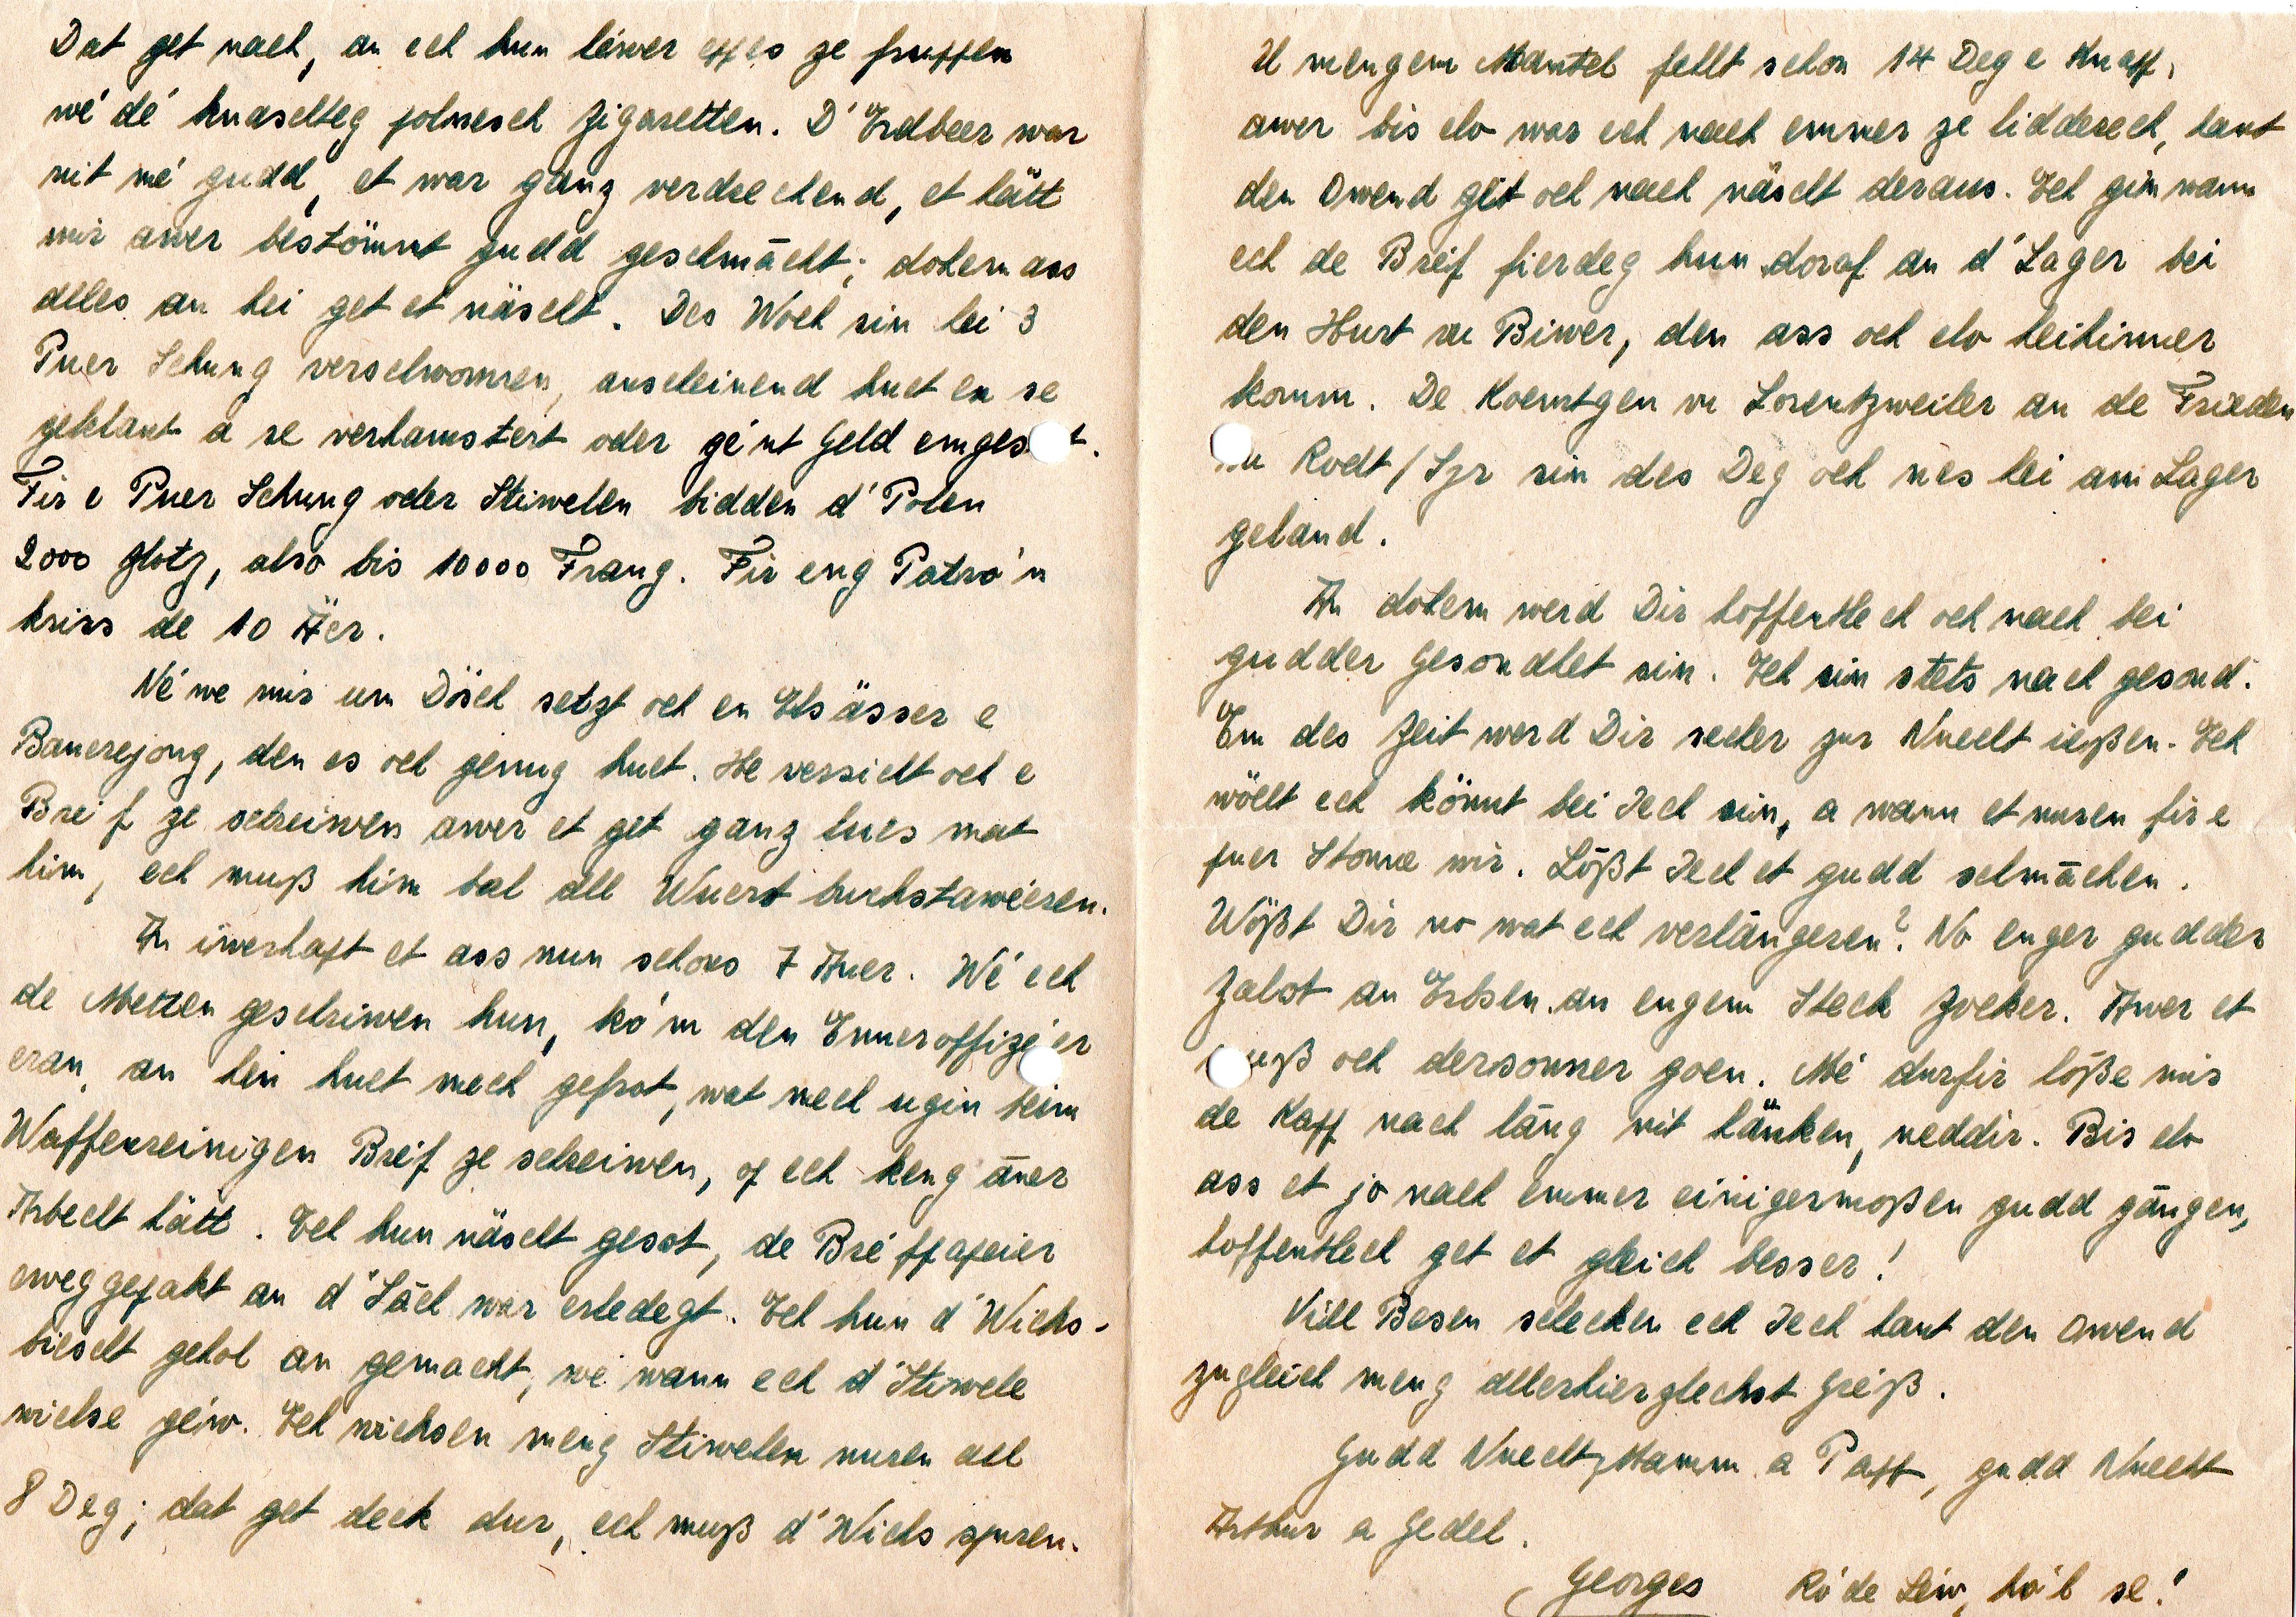 Dat get nach, an ech hun léwer eppes ze fruppen
wé dé knaschteg polnesch Zigaretten. D'Erdbeer war
nit mé gudd, et war ganz verdrechend, et hätt
mir awer bestömmt gudd geschmācht; dohem ass
alles an hei get et näscht. Des Woch sin hei 3
Puer Schung verschwonnen, anscheinend huet en se
geklaut a se verhamstert oder géint Geld emges t.
Fir e Puer Schung oder Stiwelen bidden d'Polen
2000 Zlotz, also bis 10000 Frang. Fir eng Patro'n
kriss de 10 Äer.
Né we mir um Dösch setzt och en Elsässer e
Bauerejong, den es och genug huet. He versicht och e
Breif ze schreiwen awer et get ganz lues mat
him, ech muß him bal all Wuert buchstawéieren.
An iwerhaft et ass nun schons 7 Auer. Wé ech
de Metten geschriwen hun, ko'm den Enneroffizéier
eran, an hien huet mech gefrot, wat mech ugin beim
Waffenreinigen Breif ze schreiwen, of ech keng āner
Arbecht hätt. Ech hun näscht gesot, de Bréfpapeier
eweggepakt an d'Sāch war erledegt. Ech hun d'Wichs-
biescht gehol an gemacht, wé wann ech d'Stiwele
wichse géiw. Ech wichsen meng Stiwelen nuren all
8 Deg; dat get deck dur, ech muß d'Wichs spuren.
U mengem Mantel fehlt schon 14 Deg e Knapp,
awer bis elo war ech nach emmer ze lidderech, haut
den Owend get och nach näscht deraus. Ech gin wann
ech de Breif fierdeg hun doraf an d'Lager bei
den Hurt vu Biwer, den ass och elo heihinner
komm. De Koentgen vu Lorentzweiler an de Frieden
vu Rodt/Syr sin des Deg och nes hei am Lager
geland.
An dohem werd Dir hoffentlech och nach bei
gudder Gesondhet sin. Ech sin stets nach gesond.
Em des Zeit werd Dir secher zur Nuecht ießen. Ech
wöllt ech könnt bei Iech sin, a wann et nuren fir e
puer Stonne wir. Lößt Iech et gudd schmāchen.
Wößt Dir no wat ech verlāngeren? No enger gudder
Zalot an Erbsen an engem Steck Zocker. Awer et
muß och dersonner goen. Mé durfir löße mir
de Kapp nach lāng nit hänken, neddir. Bis elo
ass et jo nach emmer einigermoßen gudd gāngen,
hoffentlech get et gleich besser!
Vill Besen schecken ech Iech haut den Owend
zugleich meng allerhierzlechst Gréiß.
Gudd Nuecht, Mamm a Papp, gudd Nuecht
Arthur a Gedel.
Georges Ro'de Léiw, ho'l se!